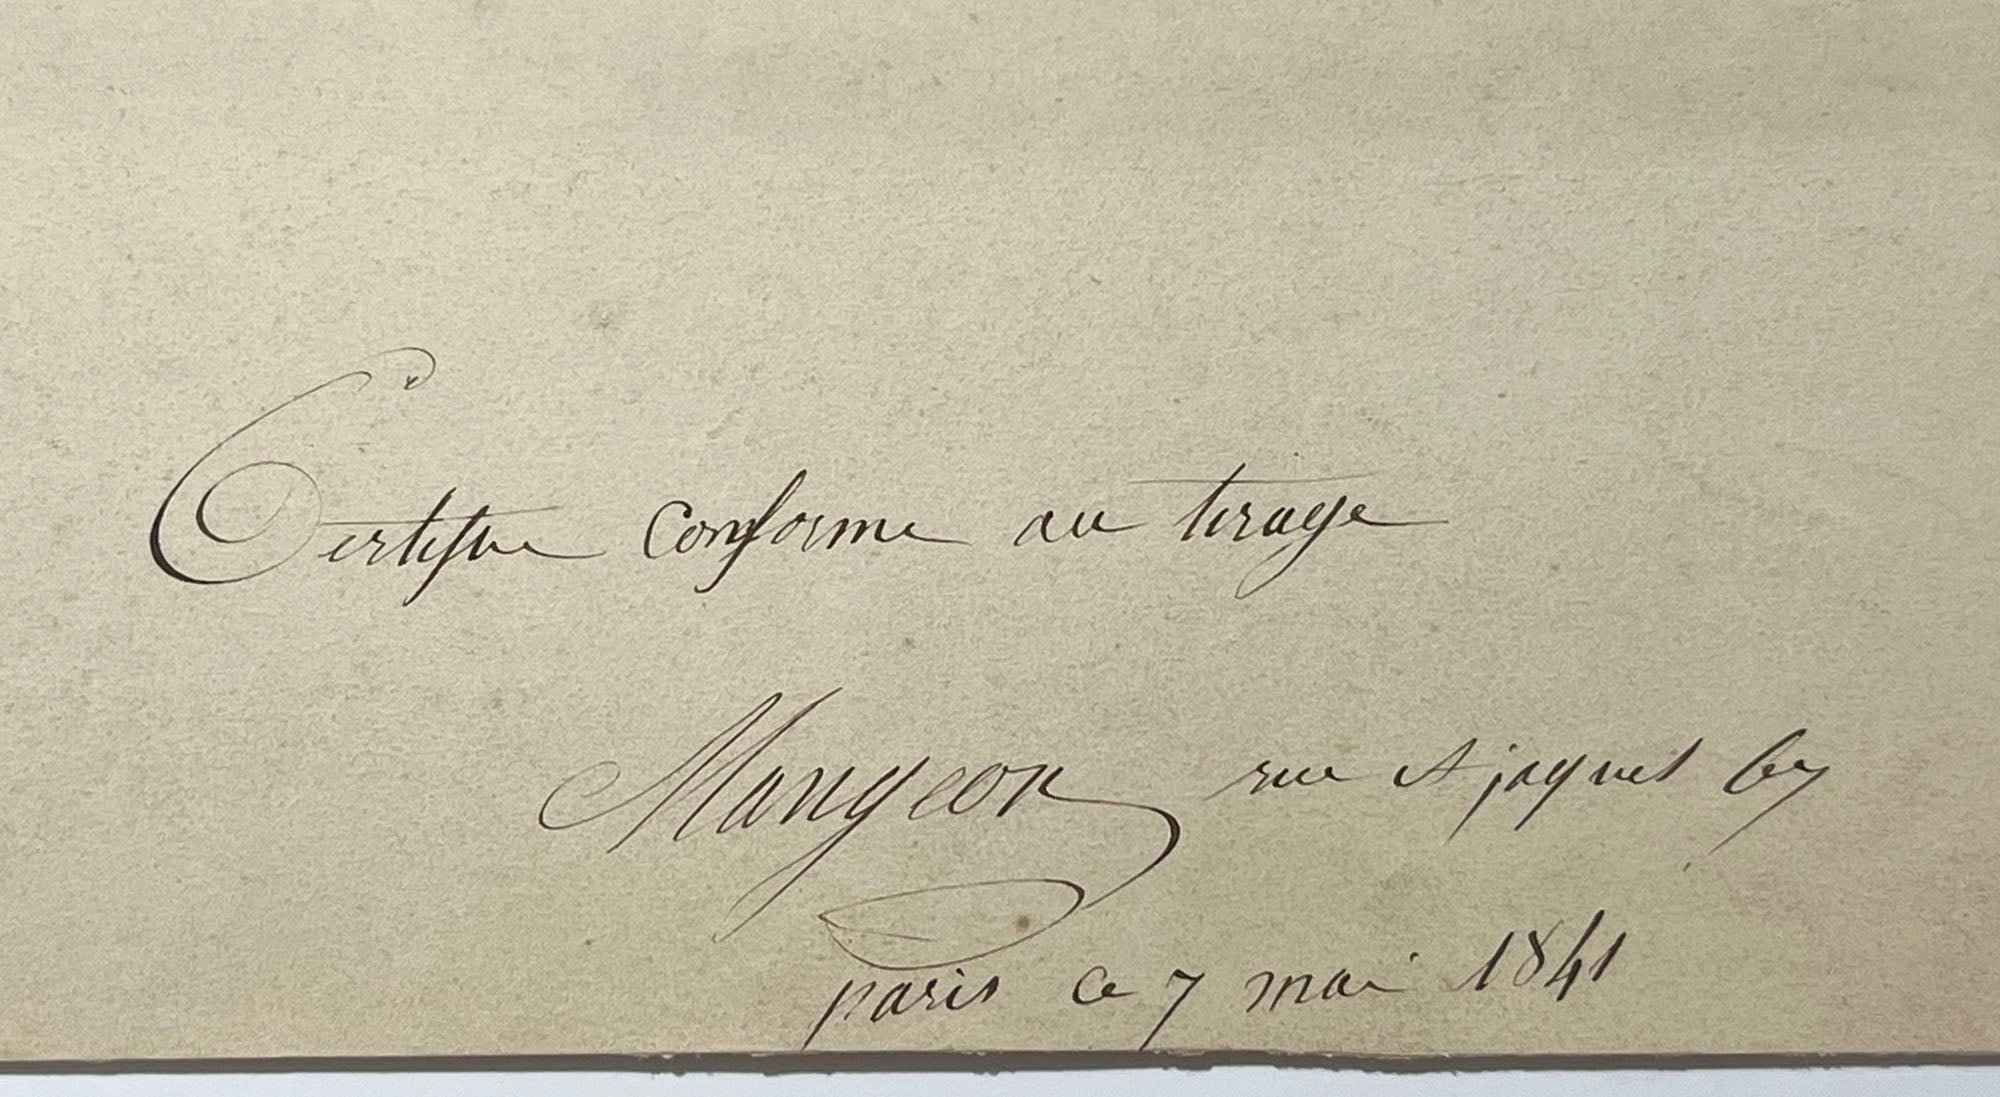 Certifie conforme au tirage
Mangeon rue st jaques 67
paris ce 7 mai 1841